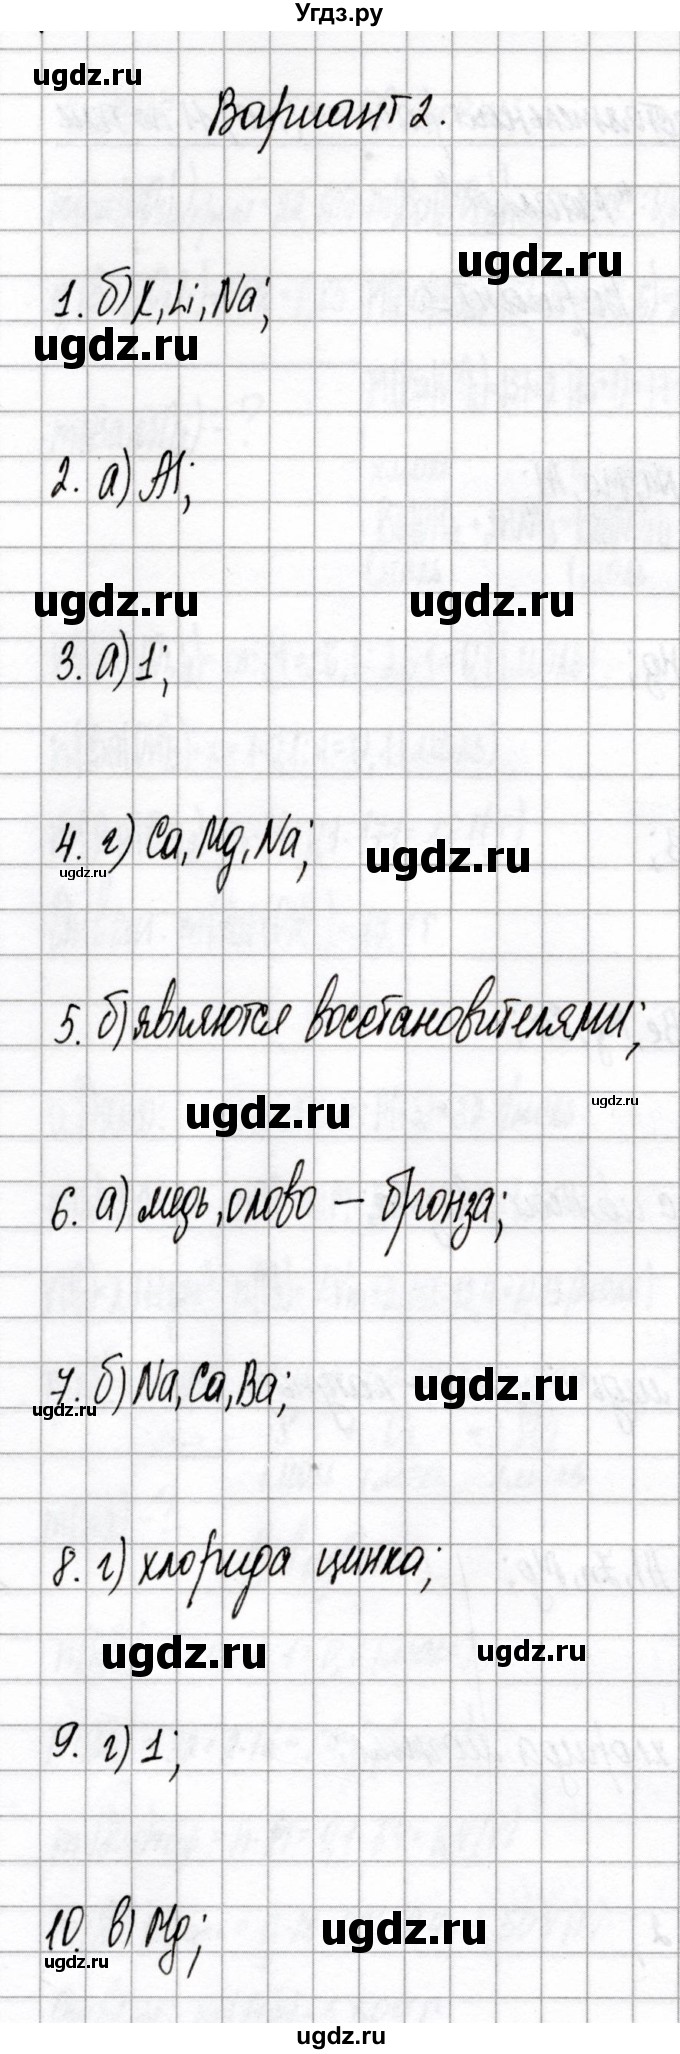 Угдз.ру
ugdz.ru
Вариант 2.
ugdz.ru
1. б) K, Li, Na;
ugdz.ru
2. а) Al;
ugdz.ru ugdz.ru
3. а) 1;
4. г) Ca, Mg, Na;
ugdz.ru
ugdz.ru
5. б) являются восстановителями;
ugdz.ru
ugdz.ru
6. а) медь, олово – бронза;
7. б) Na, Ca, Ba;
ugdz.ru
ugdz.ru
8. г) хлорида цинка;
ugdz.ru ugdz.ru
9. г) 1;
10. в) Mg;
ugdz.ru
ugdz.ru
ugdz.ru